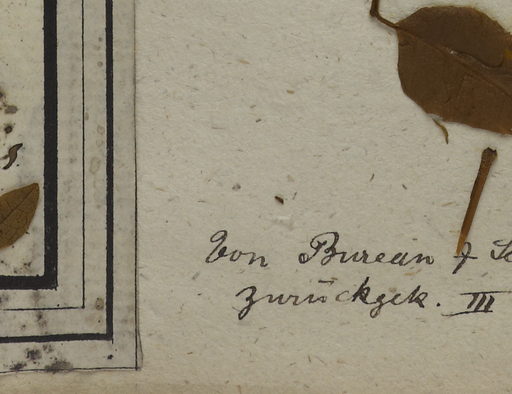 Von Bureau f
zurückgek. III